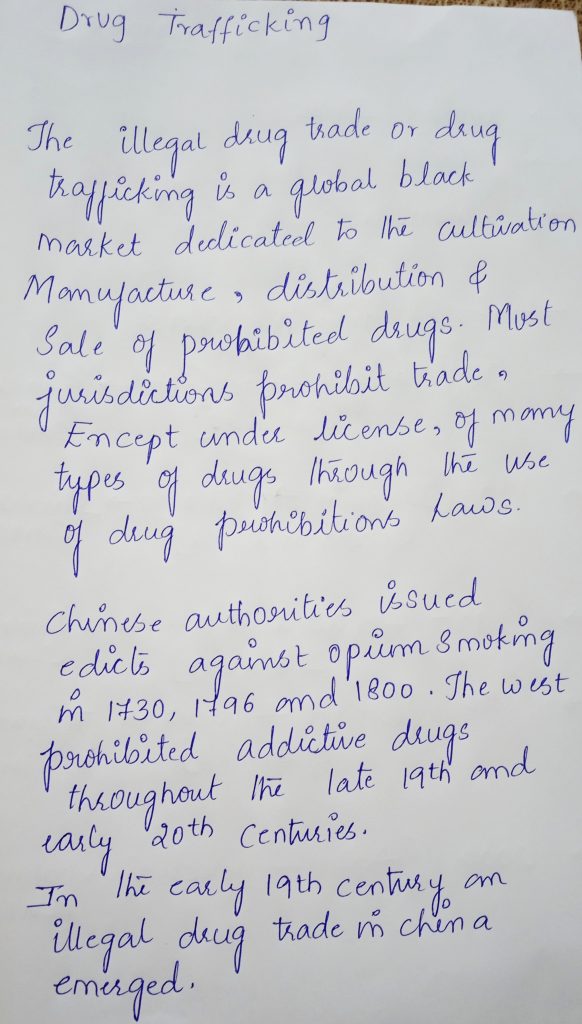 Drug Trafficking
The illegal drug trade or drug
trafficking is a global black
market dedicated to the cultivation
Manufacture, distribution &
Sale of prohibited drugs. Most
jurisdictions prohibit trade,
Except under license, of many
types of drugs through the use
of drug prohibitions Laws.
Chinese authorities issued
edicts against opium Smoking
in 1730, 1796 and 1800. The west
prohibited addictive drugs
throughout the late 19th and
early 20th Centuries.
In the early 19th century an
illegal drug trade in china
emerged.